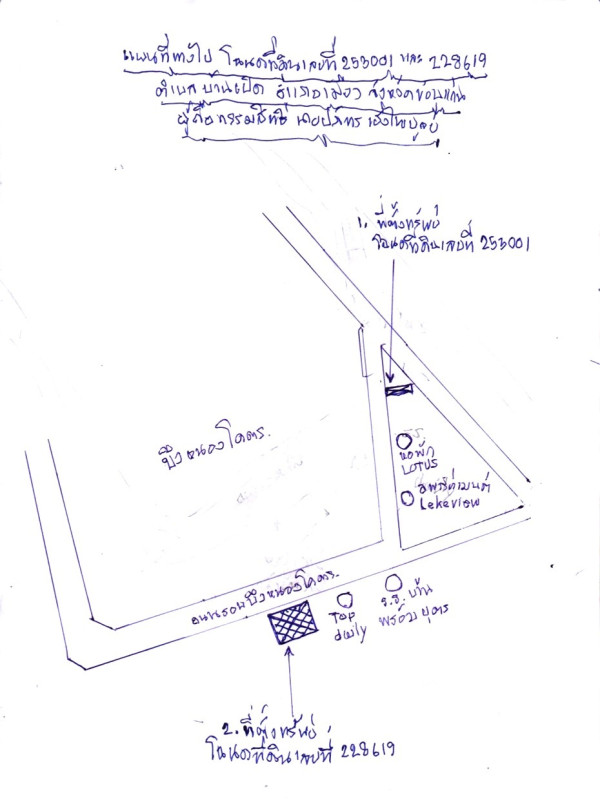 แผนที่ทางไป โฉนดที่ดินเลขที่ 253001 และ 228619
ตำบล บ้านเป็ด อำเภอเมือง จังหวัดขอนแก่น
ผู้ถือกรรมสิทธิ์ นาย
1. ที่ตั้งทรัพย์
โฉนดที่ดินเลขที่ 253001
บึงหนองโคตร.
หอพัก
LOTUS
อพาร์ตเมนต์
Lakeview
ถนนรอบบึงหนองโคตร.
Top
daily
ร.ร. บ้าน
พร้อมบุตร
2. ที่ตั้งทรัพย์
โฉนดที่ดินเลขที่ 228619